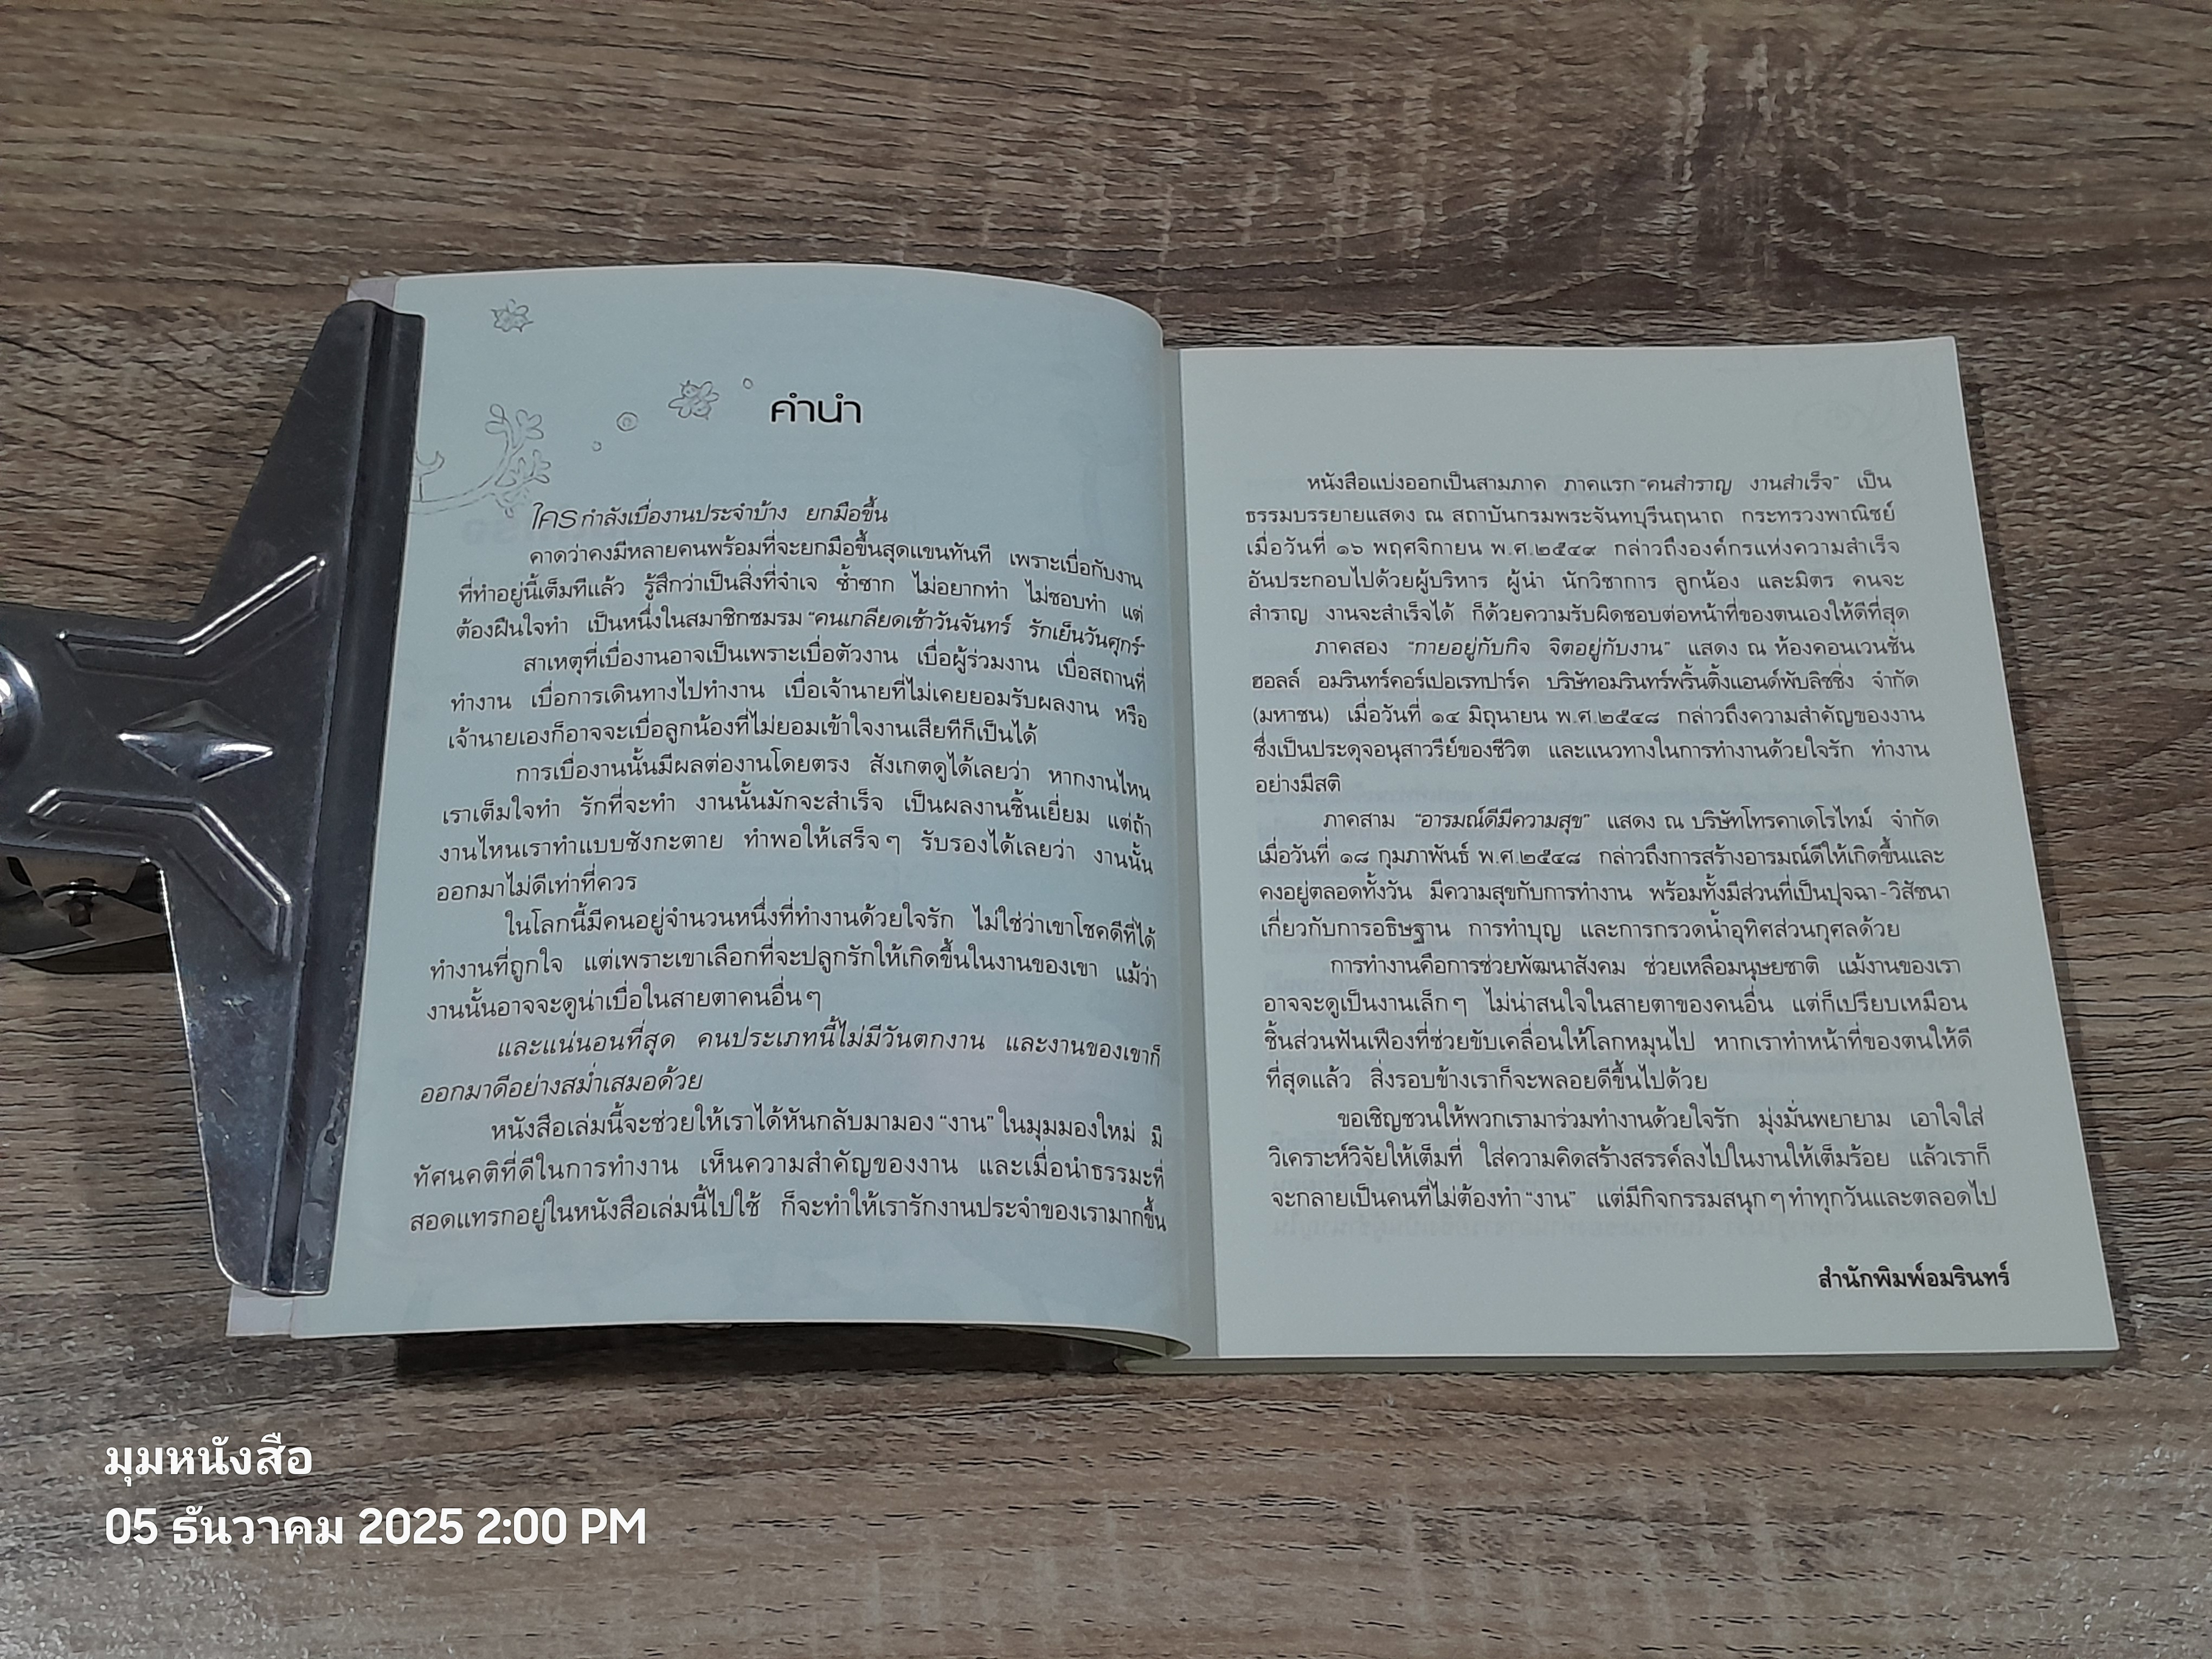 คำนำ
ใครกำลังเบื่องานประจำบ้าง ยกมือขึ้น
คาดว่าคงมีหลายคนพร้อมที่จะยกมือขึ้นสุดแขนทันที เพราะเบื่อกับงาน
ที่ทำอยู่นี้เต็มทีแล้ว รู้สึกว่าเป็นสิ่งที่จำเจ ซ้ำซาก ไม่อยากทำ ไม่ชอบทำ แต่
ต้องฝืนใจทำ เป็นหนึ่งในสมาชิกชมรม “คนเกลียดเช้าวันจันทร์ รักเย็นวันศุกร์”
สาเหตุที่เบื่องานอาจเป็นเพราะเบื่อตัวงาน เบื่อผู้ร่วมงาน เบื่อสถานที่
ทำงาน เบื่อการเดินทางไปทำงาน เบื่อเจ้านายที่ไม่เคยยอมรับผลงาน หรือ
เจ้านายเองก็อาจจะเบื่อลูกน้องที่ไม่ยอมเข้าใจงานเสียทีก็เป็นได้
การเบื่องานนั้นมีผลต่องานโดยตรง สังเกตดูได้เลยว่า หากงานไหน
เราเต็มใจทำ รักที่จะทำ งานนั้นมักจะสำเร็จ เป็นผลงานชิ้นเยี่ยม แต่ถ้า
งานไหนเราทำแบบซังกะตาย ทำพอให้เสร็จๆ รับรองได้เลยว่า งานนั้น
ออกมาไม่ดีเท่าที่ควร
ในโลกนี้มีคนอยู่จำนวนหนึ่งที่ทำงานด้วยใจรัก ไม่ใช่ว่าเขาโชคดีที่ได้
ทำงานที่ถูกใจ แต่เพราะเขาเลือกที่จะปลูกรักให้เกิดขึ้นในงานของเขา แม้ว่า
งานนั้นอาจจะดูน่าเบื่อในสายตาคนอื่นๆ
และแน่นอนที่สุด คนประเภทนี้ไม่มีวันตกงาน และงานของเขาก็
ออกมาดีอย่างสม่ำเสมอด้วย
หนังสือเล่มนี้จะช่วยให้เราได้หันกลับมามอง “งาน” ในมุมมองใหม่ มี
ทัศนคติที่ดีในการทำงาน เห็นความสำคัญของงาน และเมื่อนำธรรมะที่
สอดแทรกอยู่ในหนังสือเล่มนี้ไปใช้ ก็จะทำให้เรารักงานประจำของเรามากขึ้น
หนังสือแบ่งออกเป็นสามภาค ภาคแรก “คนสำราญ งานสำเร็จ” เป็น
ธรรมบรรยายแสดง ณ สถาบันกรมพระจันทบุรีนฤนาถ กระทรวงพาณิชย์
เมื่อวันที่ ๑๖ พฤศจิกายน พ.ศ.๒๕๔๙ กล่าวถึงองค์กรแห่งความสำเร็จ
อันประกอบไปด้วยผู้บริหาร ผู้นำ นักวิชาการ ลูกน้อง และมิตร คนจะ
สำราญ งานจะสำเร็จได้ ก็ด้วยความรับผิดชอบต่อหน้าที่ของตนเองให้ดีที่สุด
ภาคสอง “กายอยู่กับกิจ จิตอยู่กับงาน” แสดง ณ ห้องคอนเวนชั่น
ฮอลล์ อมรินทร์คอร์เปอเรทปาร์ค บริษัทอมรินทร์พริ้นติ้งแอนด์พับลิชชิ่ง จำกัด
(มหาชน) เมื่อวันที่ ๑๔ มิถุนายน พ.ศ.๒๕๔๘ กล่าวถึงความสำคัญของงาน
ซึ่งเป็นประดุจอนุสาวรีย์ของชีวิต และแนวทางในการทำงานด้วยใจรัก ทำงาน
อย่างมีสติ
ภาคสาม “อารมณ์ดีมีความสุข” แสดง ณ บริษัทโทรคาเดโรไทม์ จำกัด
เมื่อวันที่ ๑๘ กุมภาพันธ์ พ.ศ.๒๕๔๘ กล่าวถึงการสร้างอารมณ์ดีให้เกิดขึ้นและ
คงอยู่ตลอดทั้งวัน มีความสุขกับการทำงาน พร้อมทั้งมีส่วนที่เป็นปุจฉา-วิสัชนา
เกี่ยวกับการอธิษฐาน การทำบุญ และการกรวดน้ำอุทิศส่วนกุศลด้วย
การทำงานคือการช่วยพัฒนาสังคม ช่วยเหลือมนุษยชาติ แม้งานของเรา
อาจจะดูเป็นงานเล็กๆ ไม่น่าสนใจในสายตาของคนอื่น แต่ก็เปรียบเหมือน
ชิ้นส่วนฟันเฟืองที่ช่วยขับเคลื่อนให้โลกหมุนไป หากเราทำหน้าที่ของตนให้ดี
ที่สุดแล้ว สิ่งรอบข้างเราก็จะพลอยดีขึ้นไปด้วย
ขอเชิญชวนให้พวกเรามาร่วมทำงานด้วยใจรัก มุ่งมั่นพยายาม เอาใจใส่
วิเคราะห์วิจัยให้เต็มที่ ใส่ความคิดสร้างสรรค์ลงไปในงานให้เต็มร้อย แล้วเราก็
จะกลายเป็นคนที่ไม่ต้องทำ “งาน” แต่มีกิจกรรมสนุกๆทำทุกวันและตลอดไป
สำนักพิมพ์อมรินทร์
มุมหนังสือ
05 ธันวาคม 2025 2:00 PM